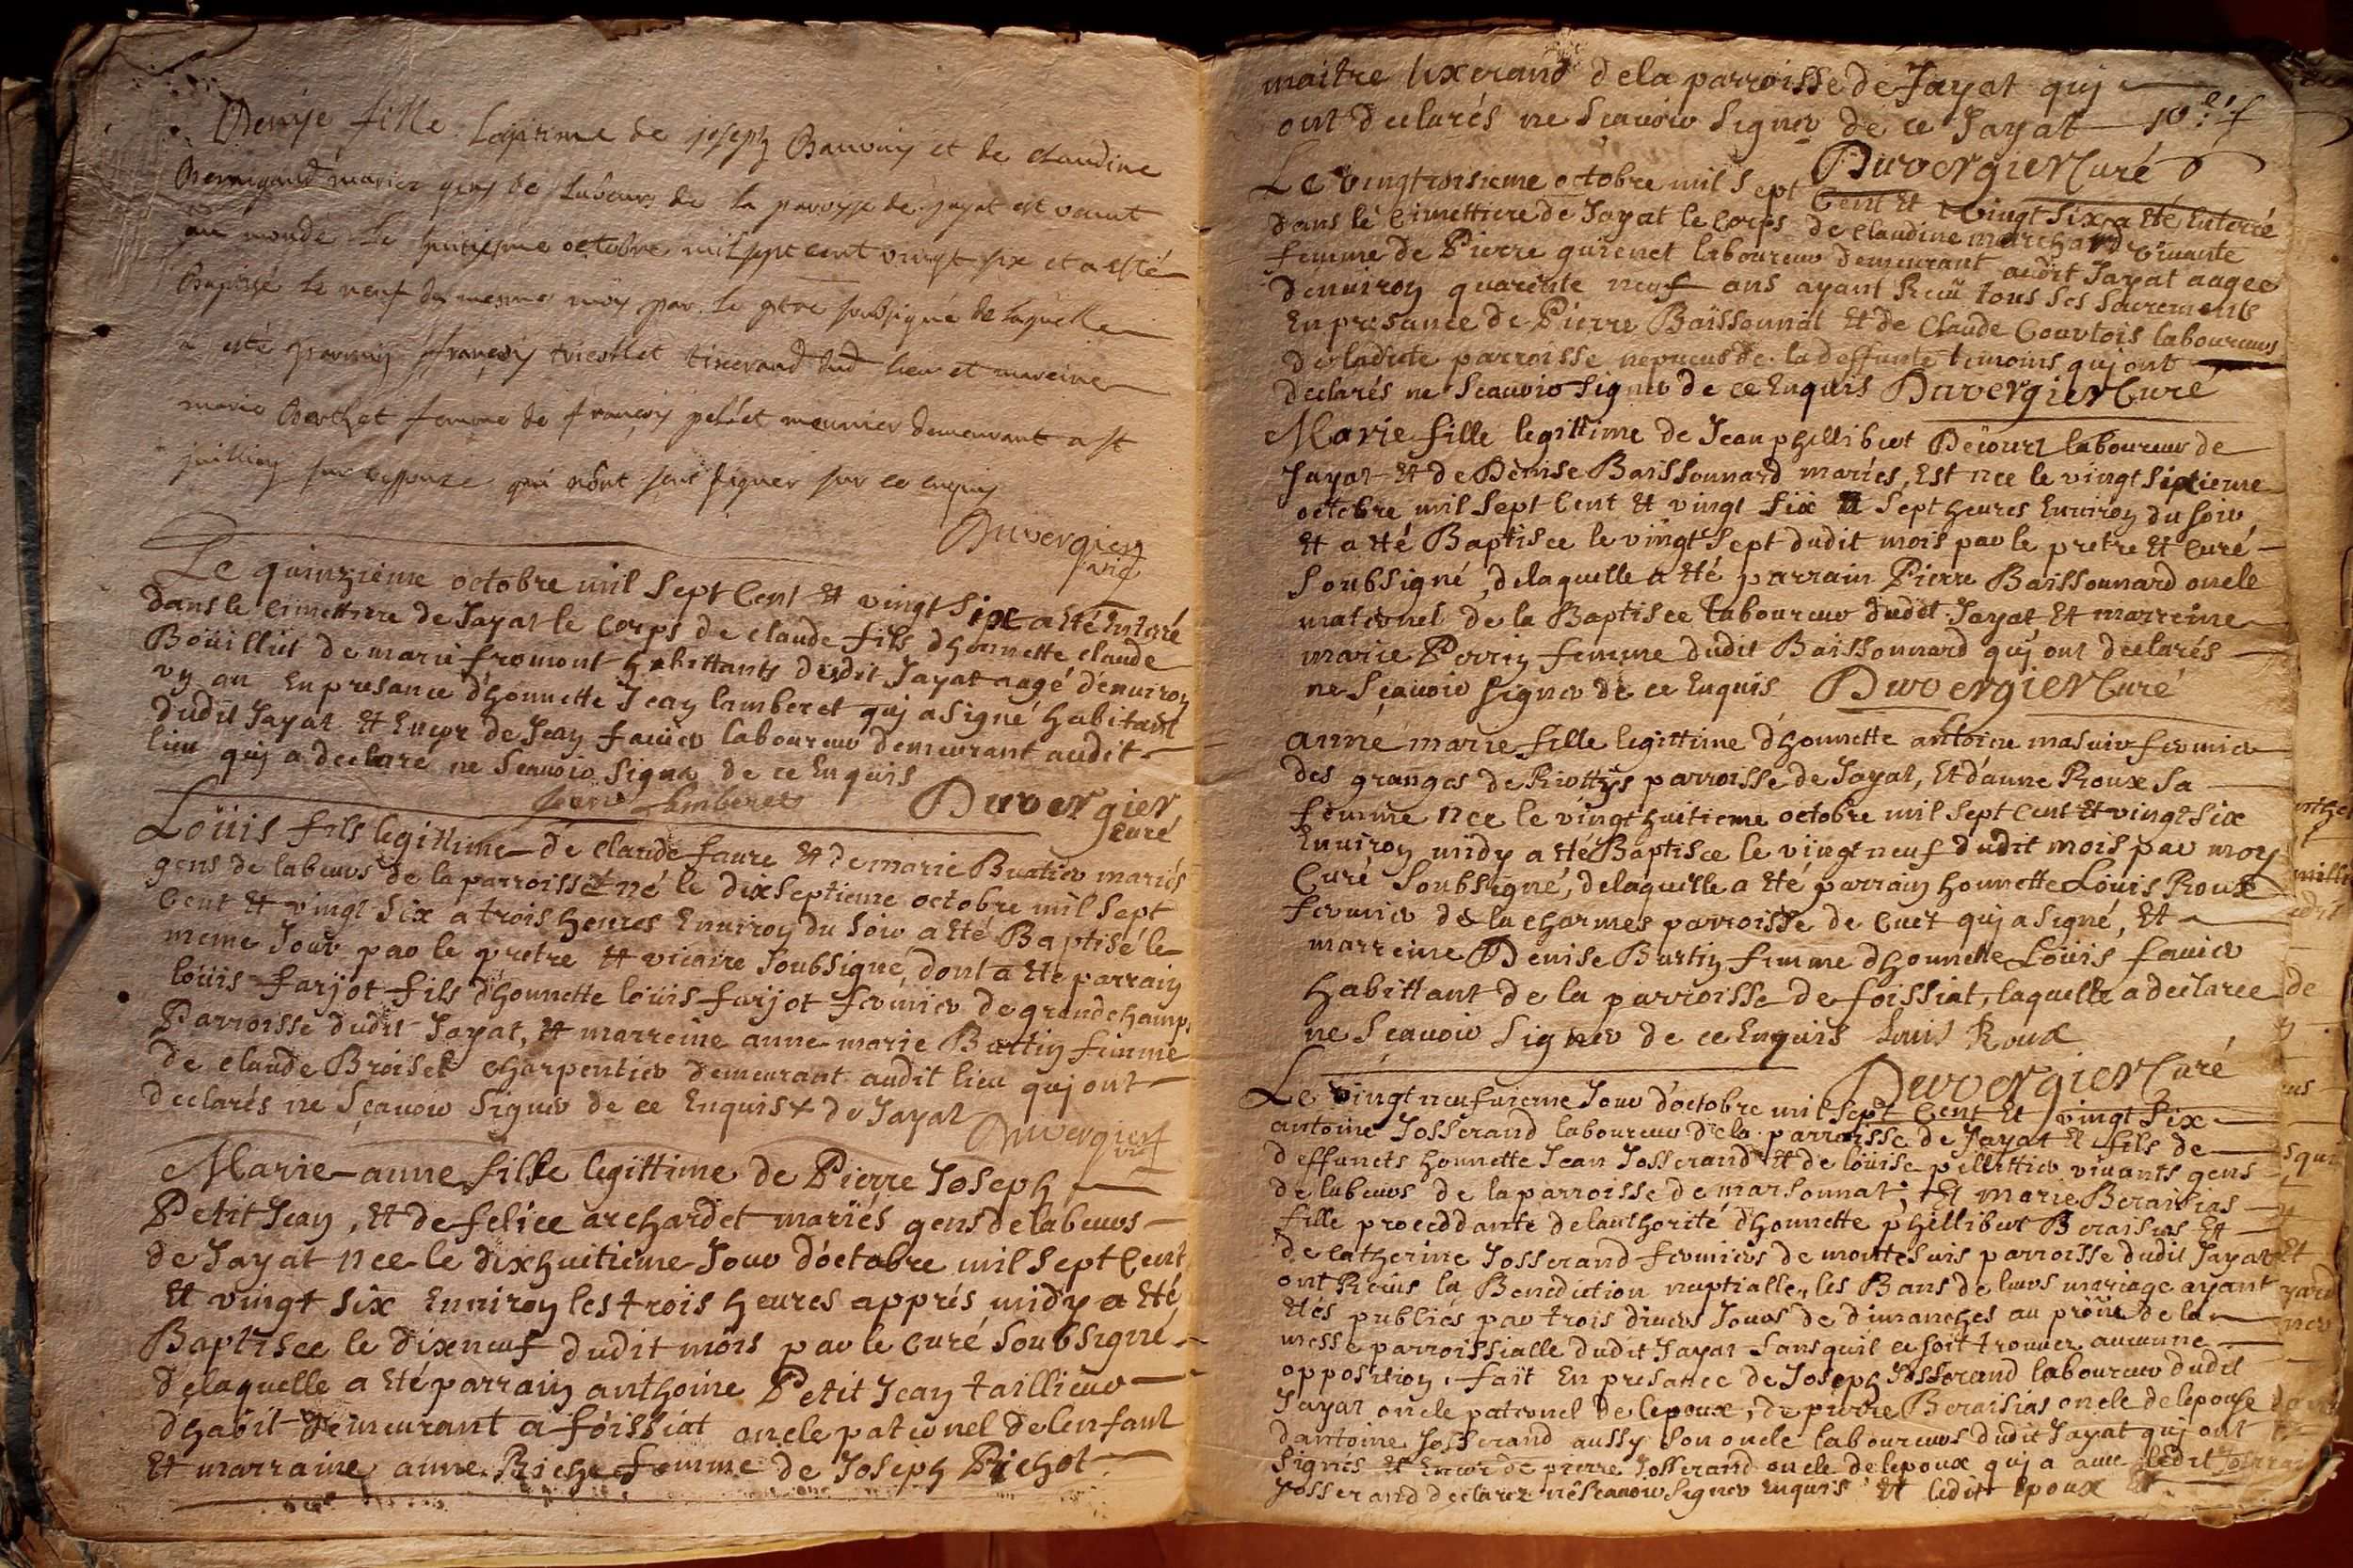 Denise fille Legitime de joseph Bauvin et de claudine
mariez gens de Labeurs de la paroisse de jayat est venut
au monde le huitiesme octobre mil sept cent vingt six et a esté
Baptisé le neuf du mesme mois par le ptre soubsigné de laquelle
a esté parrain françois tisserand dud lieu et mareine
marie Berthet femme de françois pelset meunier demeurant a st
jullien sur ressouze qui n'ont sceu signer sur ce enquis
Duvergier
vic
Le quinzieme octobre mil sept Cent et vingt six a été Enterré
dans le Cimettiere de Jayat le Corps de claude fils d'honnette claude
Boüillet de marie fromont habittants dudit Jayat aagé d'enuiron
vn an En presance d'honnette Jean lamberet quj a signé habitant
dudit Jayat Et Encor de Jean fauier laboureur demeurant audit
lieu quj a declaré ne Scauoir Signer de ce Enquis
Jean Lamberet Duvergier
curé
Loüis fils legittime de claude faure Et de marie Buatier mariés
gens de labeurs de la parroisse né le dix Septieme octobre mil Sept
Cent Et vingt Six a trois heures Enuiron du Soir a été Baptisé le
meme Jour par le pretre Et vicaire Soubsigné, dont a Eté parrain
loüis farjot fils d'honnette loüis farjot fermier de grandchamp
Parroisse dudit Jayat, Et marreine anne-marie Burtin femme
de claude Broiset charpentier demeurant audit lieu quj ont
declarés ne Sçauoir Signer de ce Enquis + de Jayat
Duvergier
vic
Marie-anne fille legittime de Pierre Joseph
Petit Jean, Et de felice archardet mariés gens de labeurs
de Jayat née le dixhuitieme Jour d'octobre mil Sept Cent
Et vingt Six Enuiron les trois heures apprés midy a Eté
Baptisée le dixneuf dudit mois par le curé Soubsigné
de laquelle a Eté parrain anthoine Petit Jean taillieur
d'habit demeurant a foissiat oncle paternel de lenfant
Et marraine anne Riche femme de Joseph Pichot
maitre tixerand de la parroisse de Jayat quj
ont declarés ne Scauoir Signer de ce Jayat
Duvergier Curé
Le Vingtroisieme octobre mil Sept Cent Et Vingt Six a été Enterré
dans le Cimettiere de Jayat le Corps de claudine marchand viuante
femme de Pierre guienet laboureur demeurant audit Jayat aagée
denuiron quarente neuf ans ayant Receü tous Ses Sacrements
En presance de Pierre Baissonnat Et de Claude Courtois laboureurs
de ladite parroisse nepueus de la deffunte temoins quj ont
declarés ne Scauoir Signer de ce Enquis Duvergier Curé
Marie fille legittime de Jean phillibert Decourt laboureur de
Jayat Et de Denise Baissonnard mariés, Est née le vingt Septieme
octobre mil Sept Cent Et vingt Six a Sept heures Enuiron du Soir
Et a été Baptisée le vingt Sept dudit mois par le pretre Et Curé
Soubsigné, de laquelle a Eté parrain Pierre Baissonnard oncle
maternel de la Baptisée laboureur dudit Jayat Et marreine
marie Perrin femme dudit Baissonnard quj ont declarés
ne Sçauoir Signer de ce Enquis Duvergier Curé
anne marie fille legittime d'honnette antoine masuir fermier
des granges de Riottys parroisse de Jayat, Et d'anne Roux Sa
femme née le vingt huitieme octobre mil Sept Cent Et vingt Six
Enuiron midy a été Baptisée le vingt neuf dudit mois par moy
Curé Soubsigné, de laquelle a Eté parrain honnette Loüis Roux
fermier de la charmes parroisse de Cuet quj a Signé, Et
marreine Denise Burtin femme d'honnette Loüis fauier
habittant de la parroisse de foissiat, laquelle a declarée
ne Scauoir Signer de ce Enquis Louis Roux
Duvergier Curé
Le Vingt neufuieme Jour d'octobre mil Sept Cent Et vingt Six
antoine Josserand laboureur de la parroisse de Jayat Et fils de
deffuncts honnette Jean Josserand Et de loüise pellettier viuants gens
de labeurs de la parroisse de marsonnat; Et marie Beraisias
fille proceddante de lauthorité d'honnette phillibert Beraisias Et
de Catherine Josserand fermiers de montesuis parroisse dudit Jayat
ont Receüs la Benediction nuptialle, les Bans de leurs mariage ayant
Etés publiés par trois diuers Jours de dimanches au prône de la
messe parroissialle dudit Jayat Sans quil ce soit trouuer aucunne
opposition. fait En presance de Joseph Josserand laboureur dudit
Jayat oncle paternel de lepoux, de pierre Beraisias oncle de lepouse
d'antoine Josserand aussy Son oncle laboureurs dudit Jayat quj ont
Signés Et Encor de pierre Josserand oncle de lepoux quj a auec ledit
Josserand declarez ne Scauoir Signer Enquis Et ledit Epoux